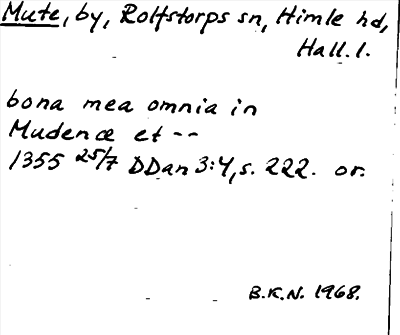 Mute, by, Rolfstorps sn, Himle hd,
Hall. l.
bona mea omnia in
Mudence et --
1355 25/7 DDan 3:4, s. 222. or.
B.K.N. 1968.